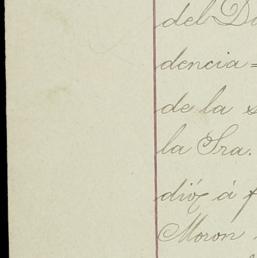 del D
dencia=
de la s
la Sra.
dió á f
Moron